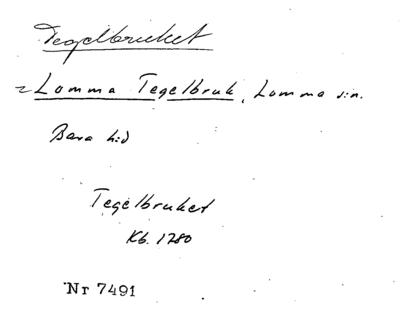 Tegelbruket
= Lomma Tegelbruk, Lomma sn.
Bara hd
Tegelbruket
Kb. 1780
Nr 7491